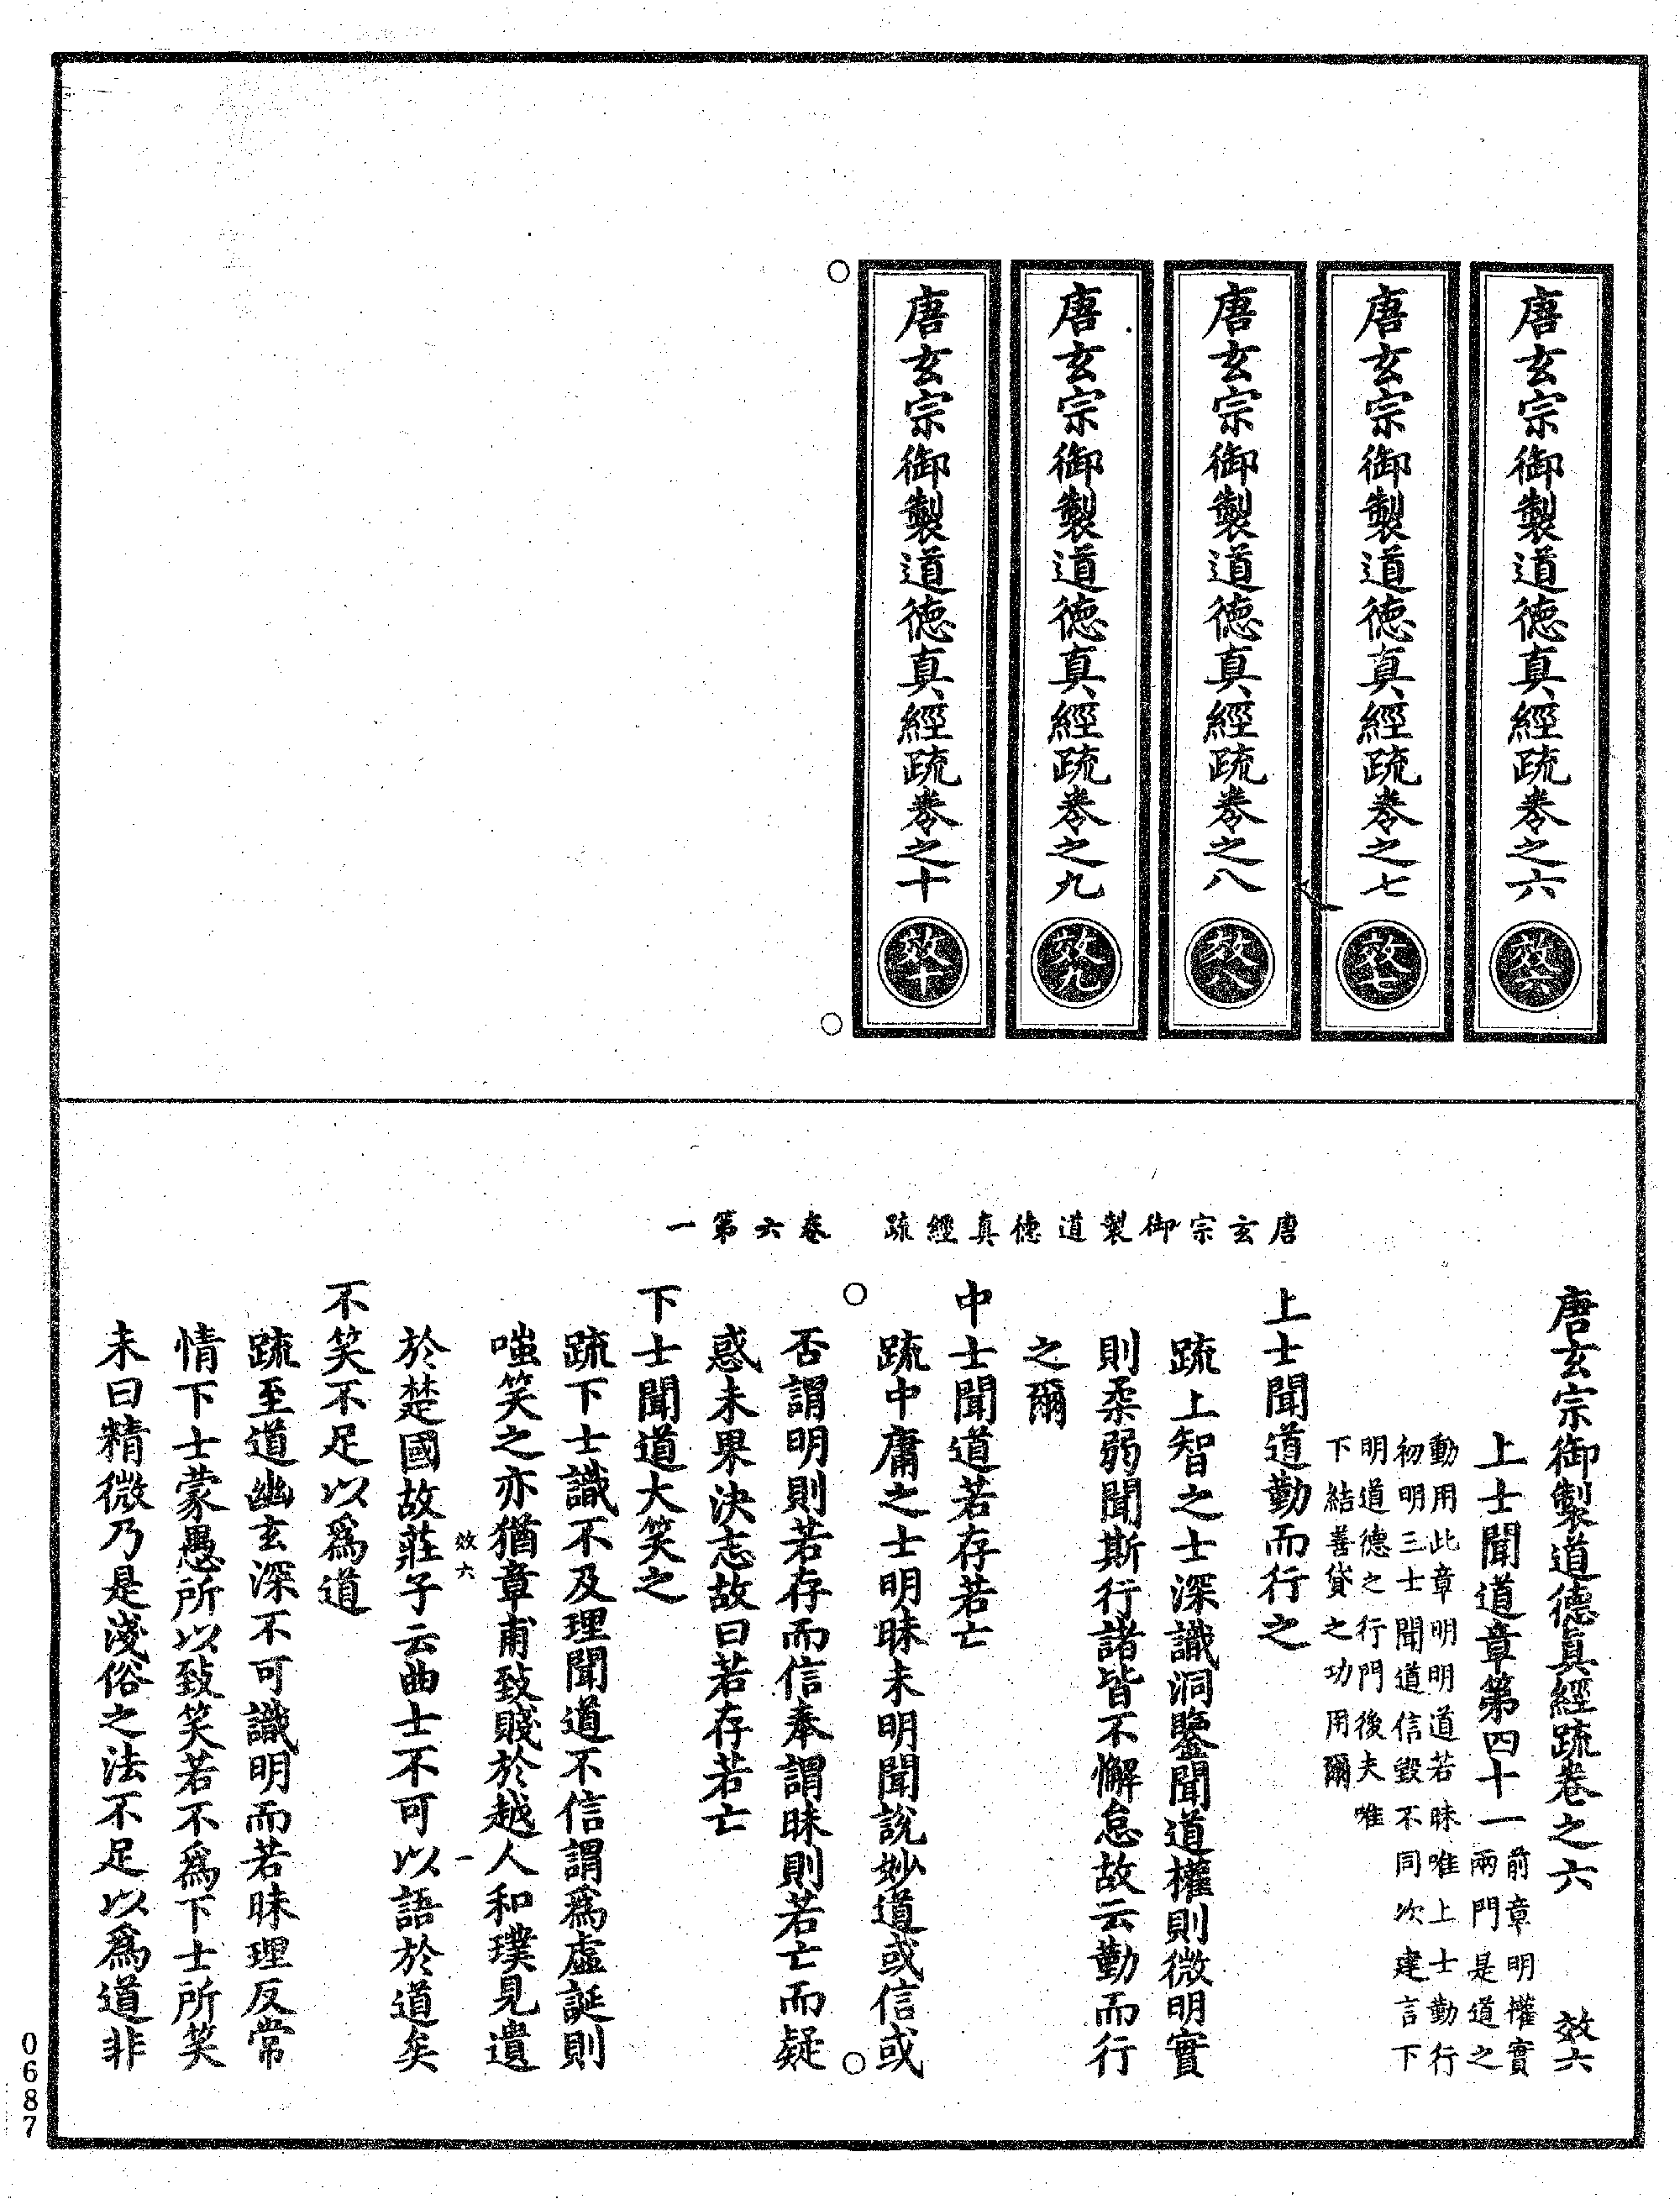 唐玄宗御製道德真經疏卷之六 效六
唐玄宗御製道德真經疏卷之七 效七
唐玄宗御製道德真經疏卷之八 效八
唐玄宗御製道德真經疏卷之九 效九
唐玄宗御製道德真經疏卷之十 效十
唐玄宗御製道德真經疏 卷六第一
唐玄宗御製道德真經疏卷之六 效六
上士聞道章第四十一
前章明權實
兩門是道之
動用此章明明道若昧唯上士勤行
初明三士聞道信毀不同次建言下
明道德之行門後夫唯
下結善貸之功用爾
上士聞道勤而行之
疏上智之士深識洞鑒聞道權則微明實
則柔弱聞斯行諸皆不懈怠故云勤而行
之爾
中士聞道若存若亡
疏中庸之士明昧未明聞說妙道或信或
否謂明則若存而信奉謂昧則若亡而疑
惑未果決志故曰若存若亡
下士聞道大笑之
疏下士識不及理聞道不信謂爲虛誕則
嗤笑之亦猶章甫致賤於越人和璞見遺
效六 一
於楚國故莊子云曲士不可以語於道矣
不笑不足以爲道
疏至道幽玄深不可識明而若昧理反常
情下士蒙愚所以致笑若不爲下士所笑
未曰精微乃是淺俗之法不足以爲道非
0687